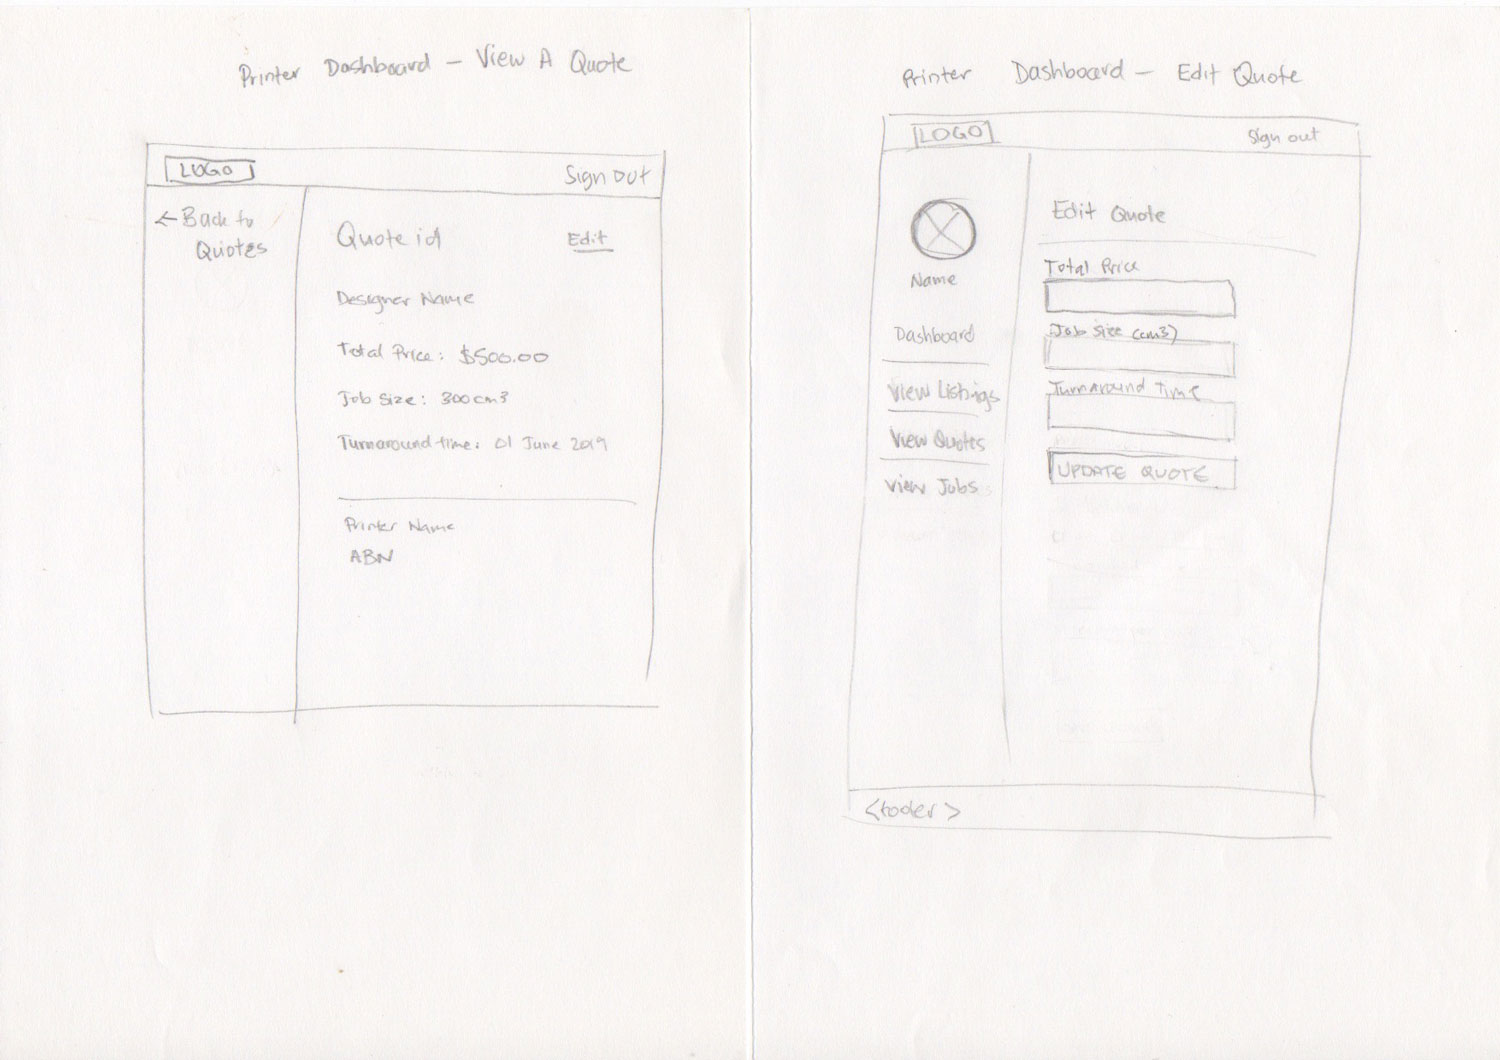 Printer Dashboard - View A Quote
LOGO
Sign Out
← Back to
Quotes
Quote id
Edit
Designer Name
Total Price: $500.00
Job Size: 300cm3
Turnaround time: 01 June 2019
Printer Name
ABN
Printer Dashboard - Edit Quote
LOGO
Sign out
Name
Dashboard
View Listings
View Quotes
View Jobs
Edit Quote
Total Price
Job Size (cm3)
Turnaround time
UPDATE QUOTE